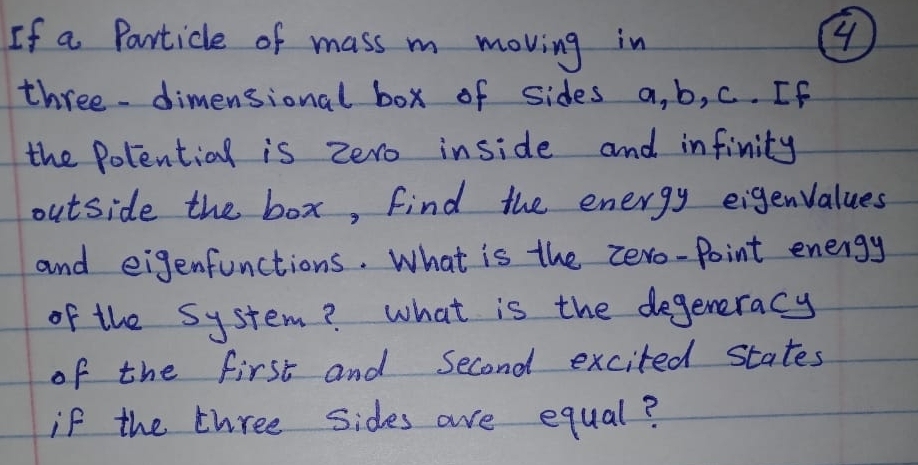 If a Particle of mass m moving in ④
three-dimensional box of sides a,b,c. If
the Potential is zero inside and infinity
outside the box, find the energy eigenvalues
and eigenfunctions. What is the zero-Point energy
of the System? What is the degeneracy
of the first and Second excited States
if the three Sides are equal?